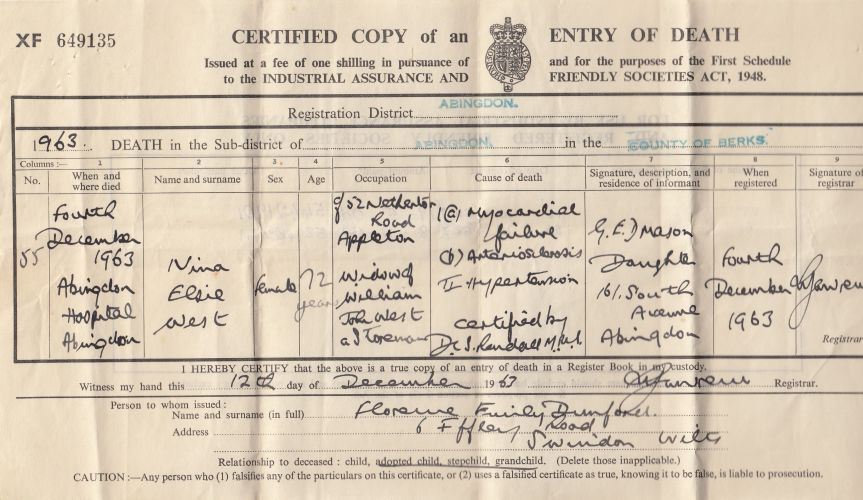 XF 649135
CERTIFIED COPY of an ENTRY OF DEATH
Issued at a fee of one shilling in pursuance of and for the purposes of the First Schedule
to the INDUSTRIAL ASSURANCE AND FRIENDLY SOCIETIES ACT, 1948.
Registration District ABINGDON.
1963. DEATH in the Sub-district of ABINGDON. in the COUNTY OF BERKS.
Columns :— 1 2 3 4 5 6 7 8 9
No. When and where died Name and surname Sex Age Occupation Cause of death Signature, description, and residence of informant When registered Signature of registrar
55
Fourth
December
1963
Abingdon
Hospital
Abingdon
Nina
Elsie
West
Female
72
years
of 52 Netherton
Road
Appleton
Widow of
William
John West
a Storeman
I (a) Myocardial
failure
(b) Arteriosclerosis
II Hypertension
certified by
G. E. J Mason
Daughter
161, South
Avenue
Abingdon
Fourth
December
1963
Registrar
I HEREBY CERTIFY that the above is a true copy of an entry of death in a Register Book in my custody.
Witness my hand this 12th day of December 1963 Registrar.
Person to whom issued :
Name and surname (in full) Florence Emily
Address 6 Iffley Road
Swindon Wilts
Relationship to deceased : child, adopted child, stepchild, grandchild. (Delete those inapplicable.)
CAUTION :—Any person who (1) falsifies any of the particulars on this certificate, or (2) uses a falsified certificate as true, knowing it to be false, is liable to prosecution.